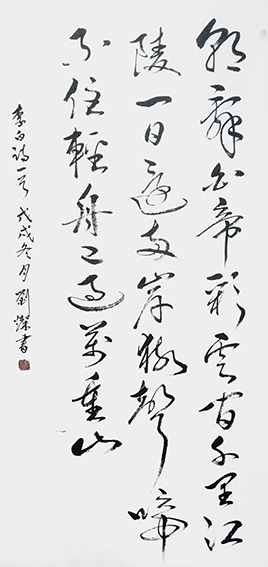 朝辭白帝彩雲間千里江
陵一日還兩岸猿聲啼
不住輕舟已過萬重山
李白詩一首 戊戌冬月 劉燦書